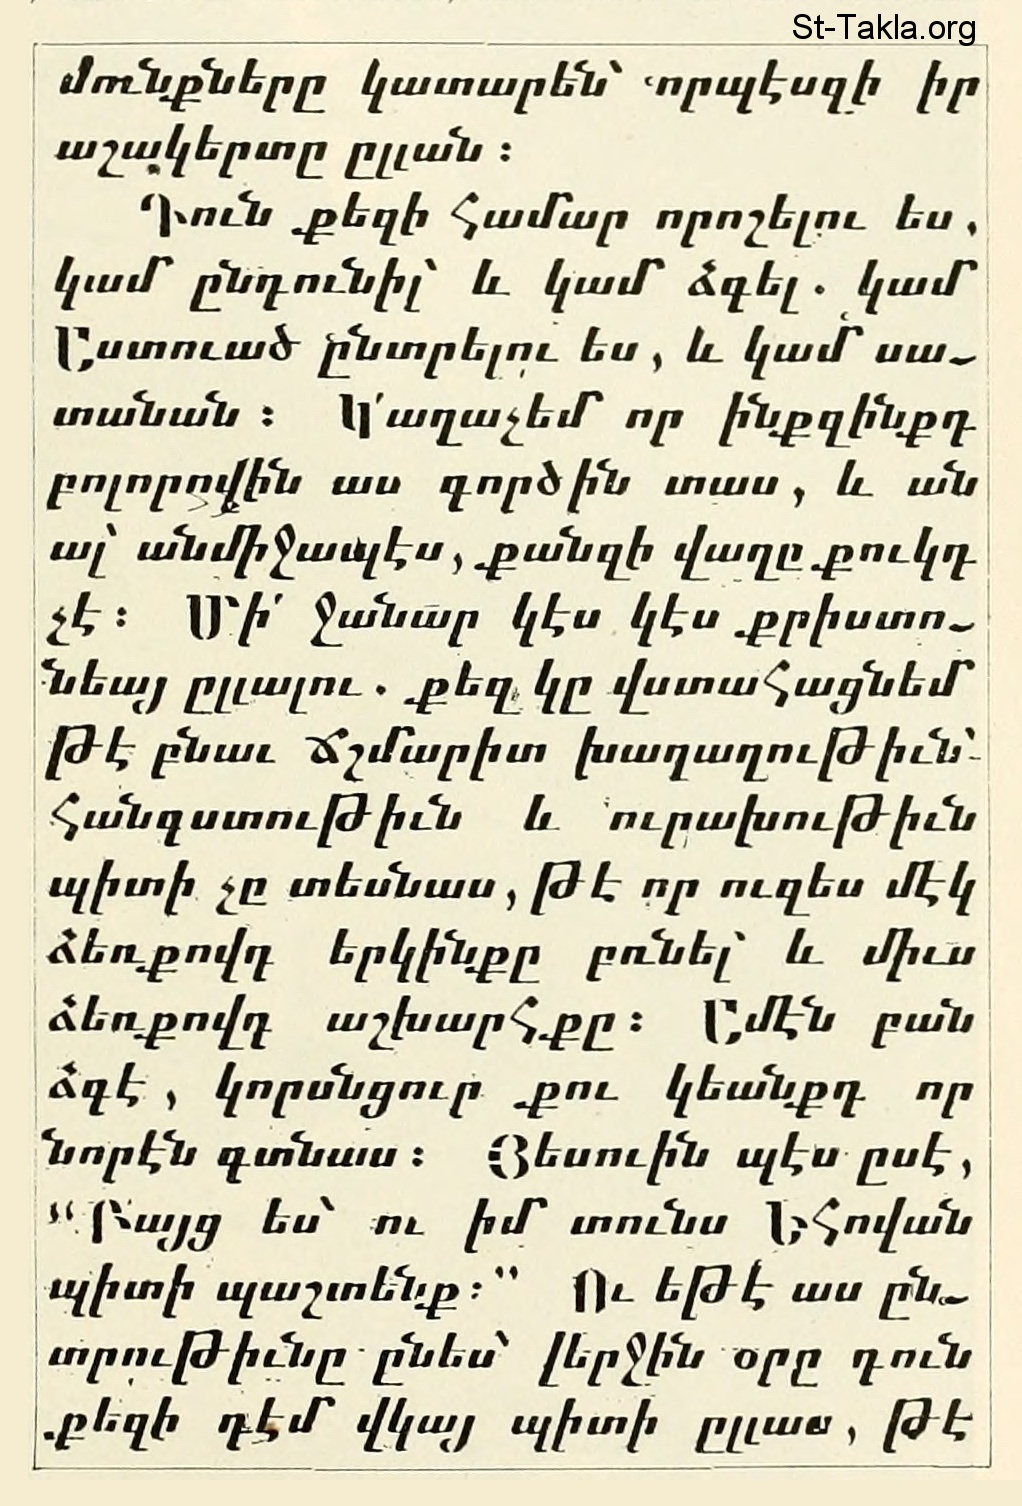 St-Takla.org
մունքները կատարեն՝ որպէսզի իր
աշակերտը ըլլան :
Դուն քեզի համար որոշելու ես,
կամ ընդունիլ՝ և կամ ձգել. կամ
Աստուած ընտրելու ես, և կամ սա-
տանան : Կ՛աղաչեմ որ ինքզինքդ
բոլորովին աս գործին տաս, և ան
ալ՝ անմիջապէս, քանզի վաղը քուկդ
չէ : Մի՛ ջանար կէս կէս քրիստո-
նեայ ըլլալու. քեզ կը վստահացնեմ
թէ բնաւ ճշմարիտ խաղաղութիւն՝
հանգստութիւն և ուրախութիւն
պիտի չը տեսնաս, թէ որ ուզես մէկ
ձեռքովդ երկինքը բռնել՝ և միւս
ձեռքովդ աշխարհքը : Ամէն բան
ձգէ, կորսնցուր քու կեանքդ որ
նորէն գտնաս : Յեսուին պէս ըսէ,
“Բայց ես՝ ու իմ տունս Եհովան
պիտի պաշտենք :” Ու եթէ աս ըն-
տրութիւնը ընես՝ վերջին օրը դուն
քեզի դէմ վկայ պիտի ըլլաս, թէ